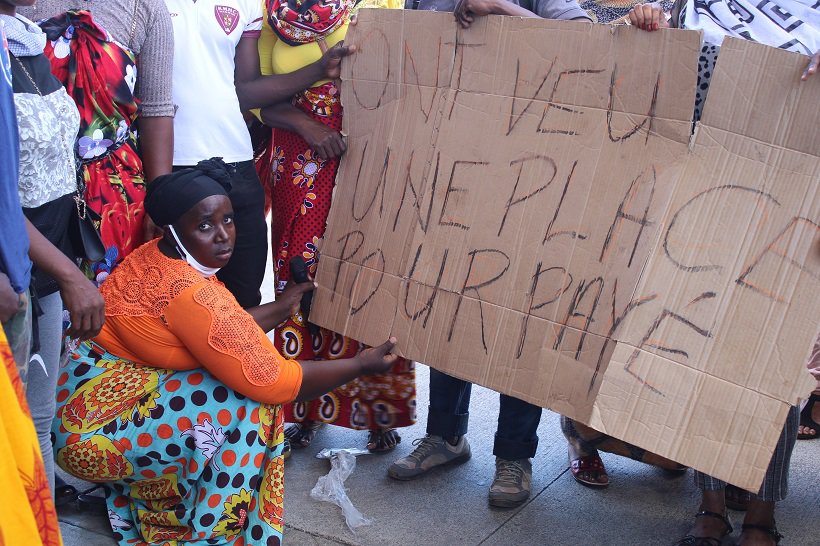 ONT VEU
UNE PLACA
POUR PAYÉ